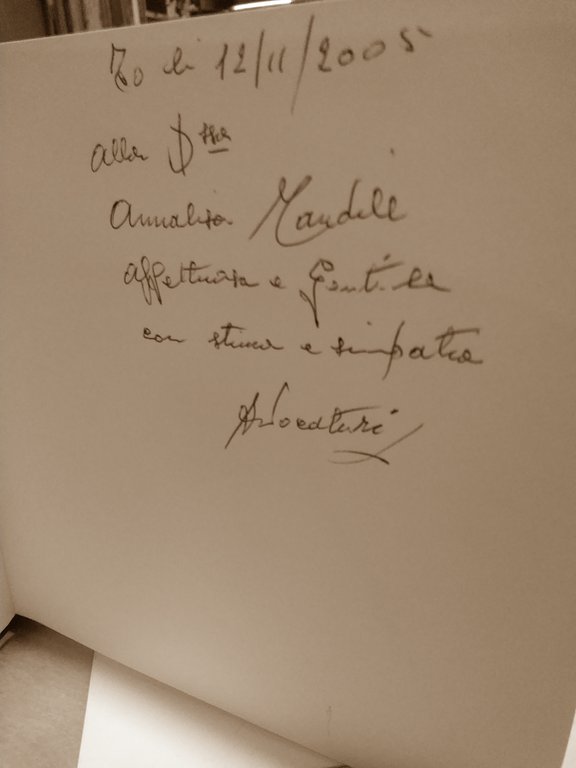 To li 12/11/2005
alla D.ssa
Annalisa
affettuosa e gentile
con stima e simpatia